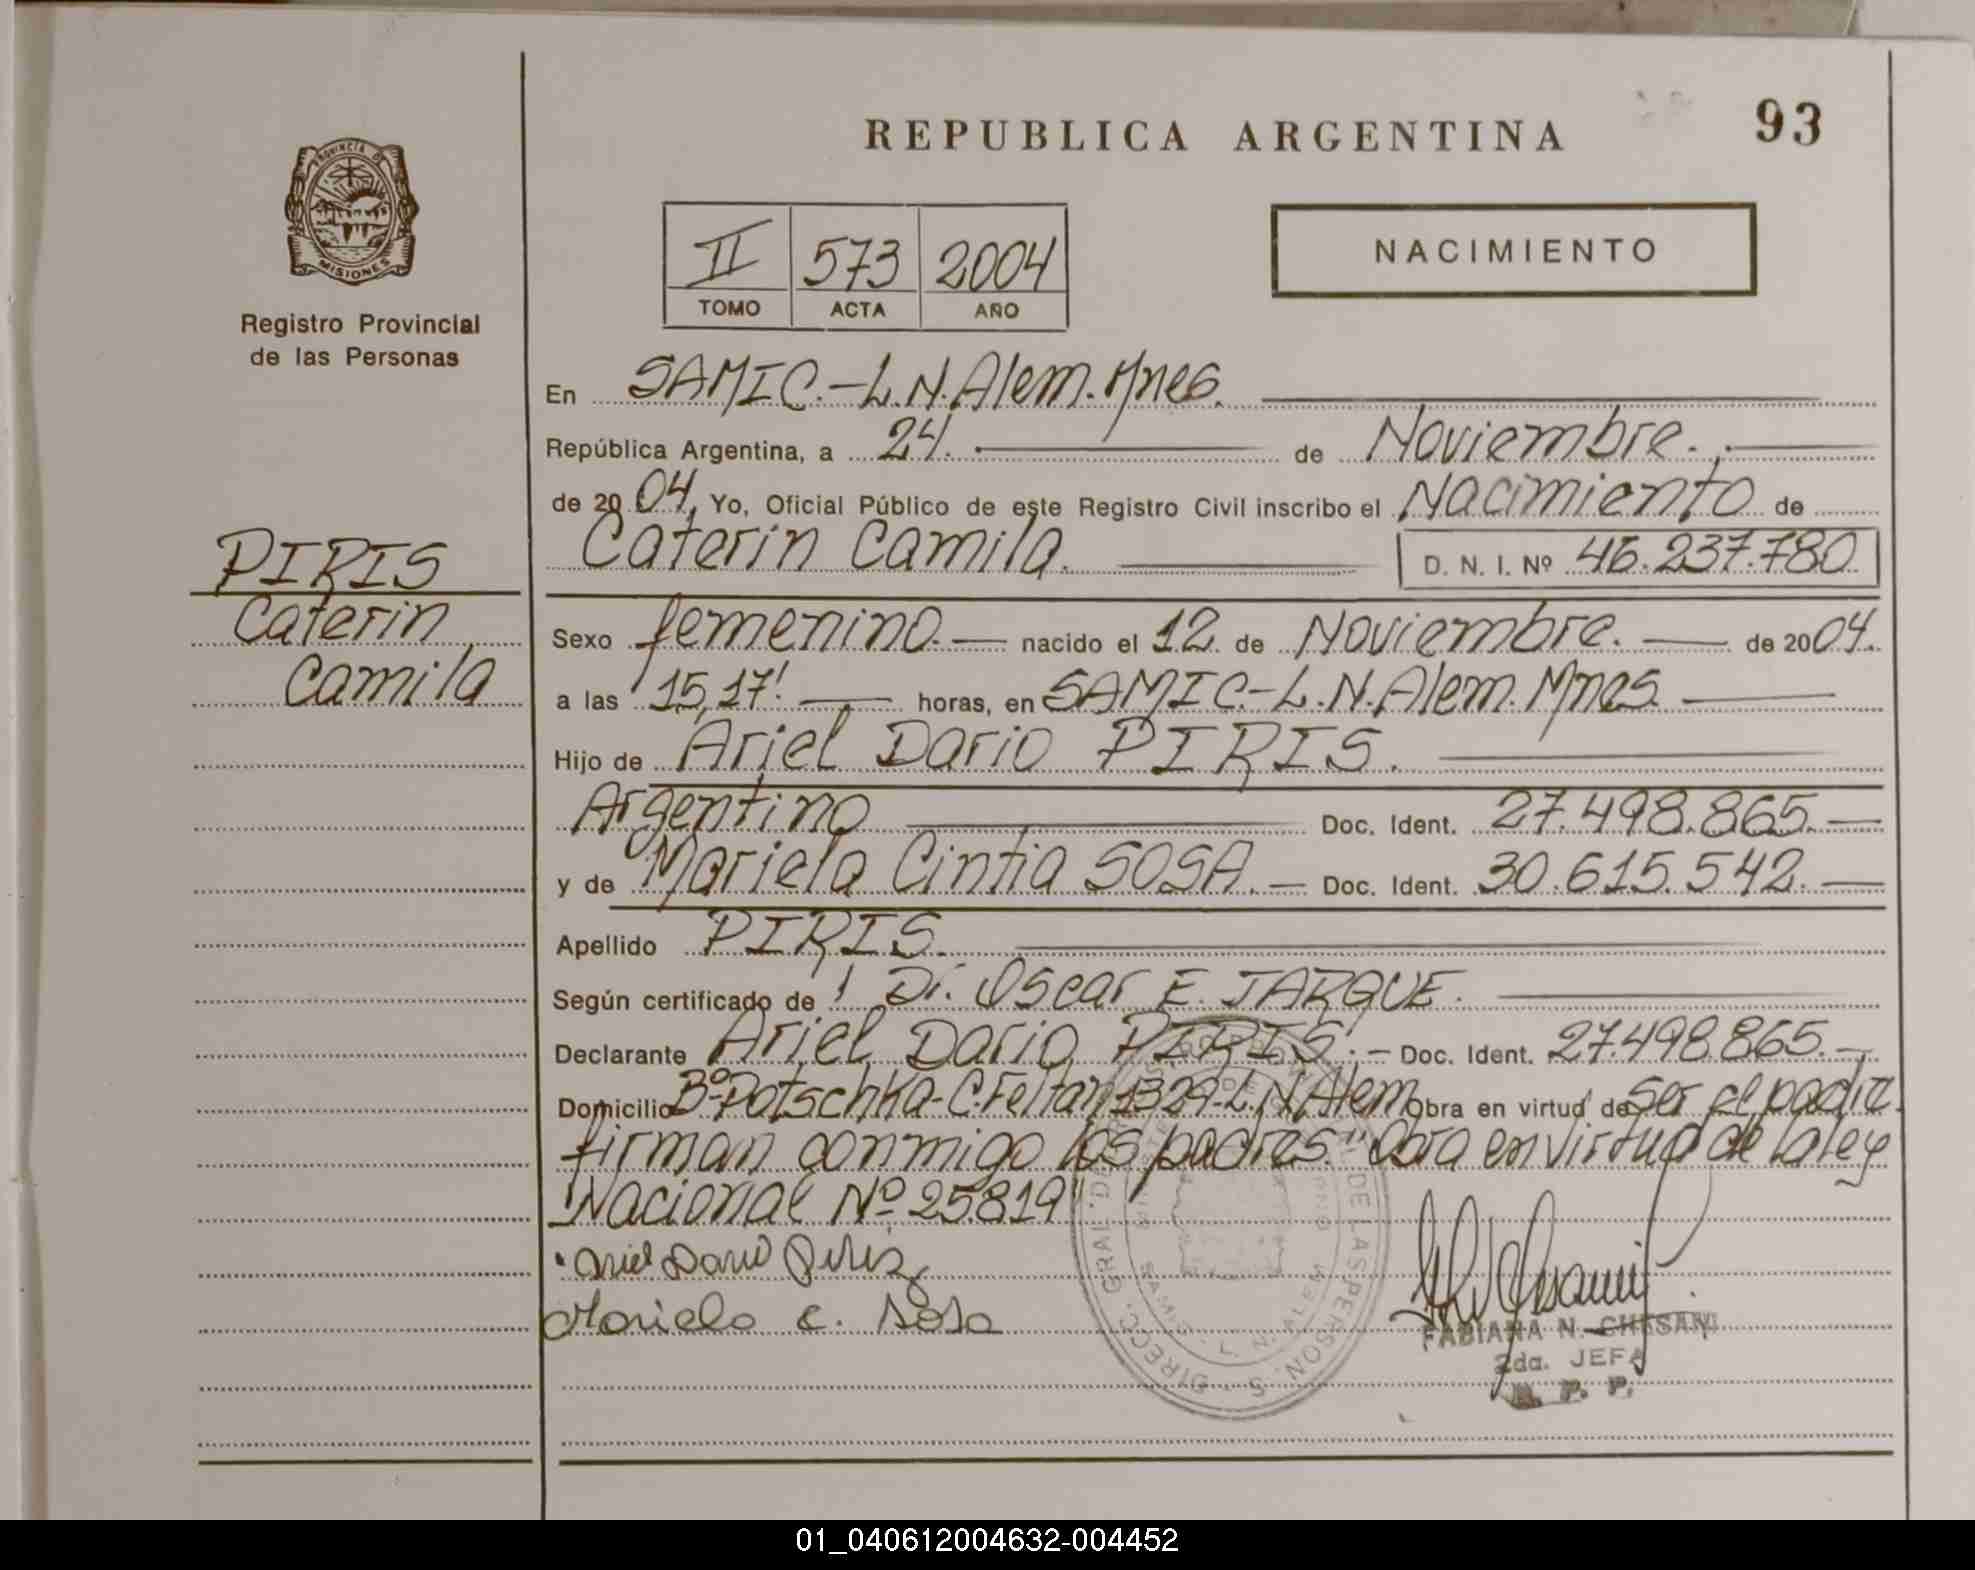 REPUBLICA ARGENTINA
93
PROVINCIA DE
MISIONES
Registro Provincial
de las Personas
II 573 2004
TOMO ACTA AÑO
NACIMIENTO
En SAMIC.-L.N.Alem.Mnes.
República Argentina, a 24. de Noviembre.
de 2004, Yo, Oficial Público de este Registro Civil inscribo el Nacimiento de
Caterin Camila. D. N. I. Nº 46.237.780
PIRIS
Caterin
Camila
Sexo femenino. nacido el 12 de Noviembre. de 2004.
a las 15,17! horas, en SAMIC.-L.N.Alem.Mnes.
Hijo de Ariel Dario PIRIS.
Argentino Doc. Ident. 27.498.865.
y de Mariela Cintia SOSA. Doc. Ident. 30.615.542.
Apellido PIRIS.
Según certificado de ! Dr. Oscar E. JARQUE.
Declarante Ariel Dario PIRIS.- Doc. Ident. 27.498.865.-
Domicilio Bº-Potschka-C. 1329-L.N.Alem Obra en virtud de ser el padre.
firman conmigo los padres." Obra en virtud de la ley
Nacional Nº 25.819"
Ariel Dario Piris
Mariela C. Sosa
DIRECC. GRAL. DE LAS PERSON.
SAMIC L. N. ALEM
FABIANA N. CHESANI
2da. JEFA
R. P. P.
01_040612004632-004452